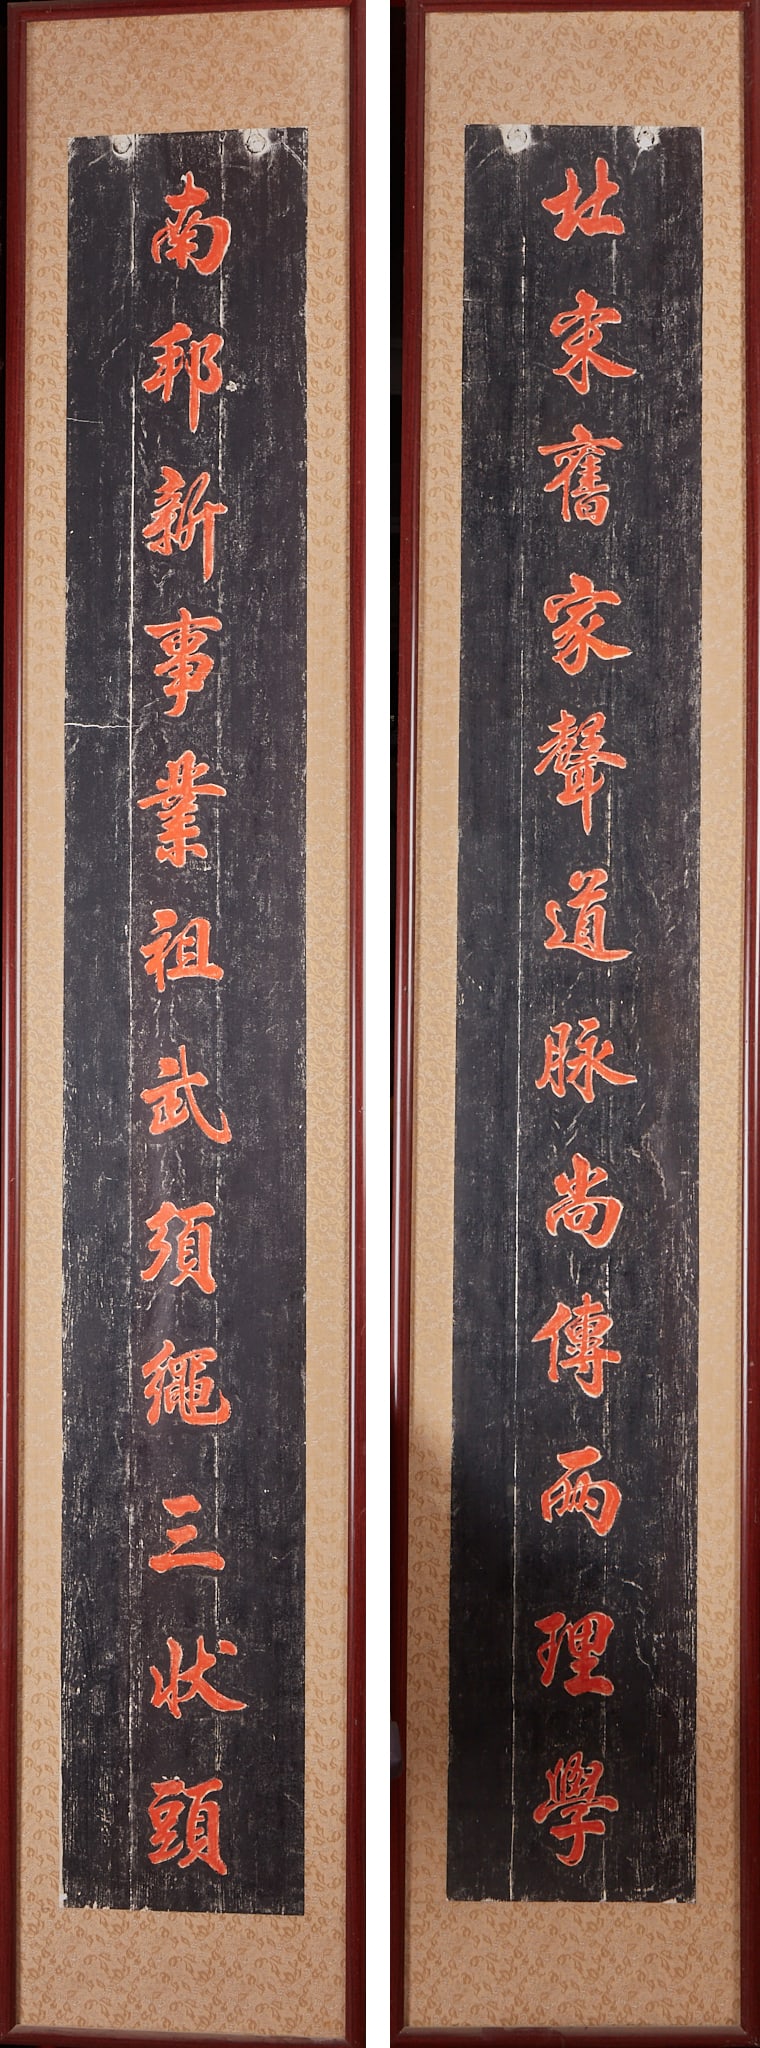 北宋舊家聲道脉尚傳兩理學
南邦新事業祖武須繩三状頭